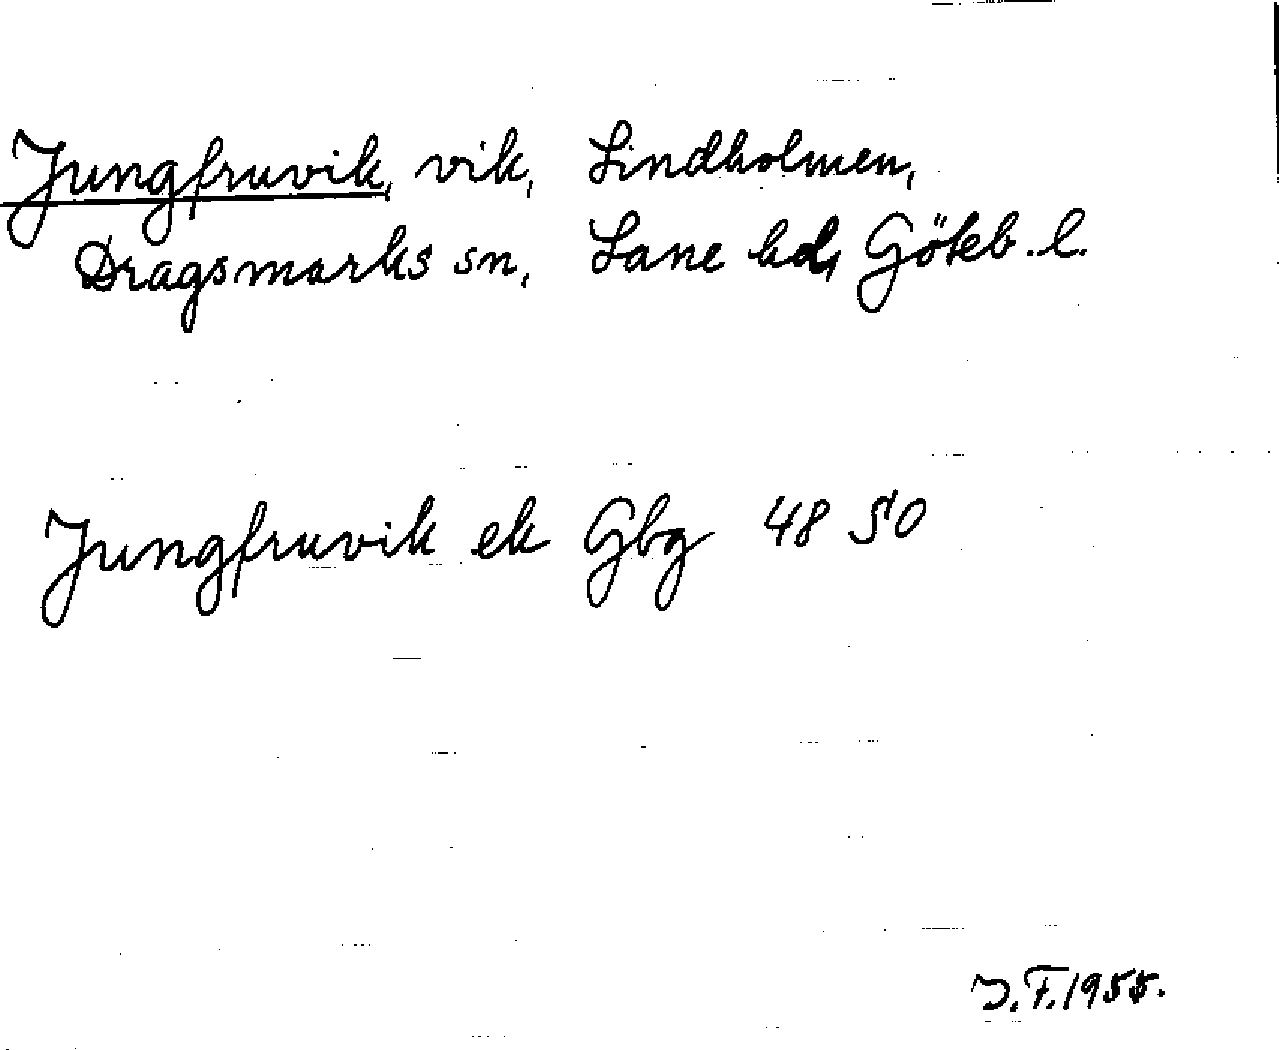 Jungfruvik, vik, Lindholmen,
Dragsmarks sn, Lane hd, Göteb. l.
Jungfruvik ek Gbg 48 50
J.F. 1955.